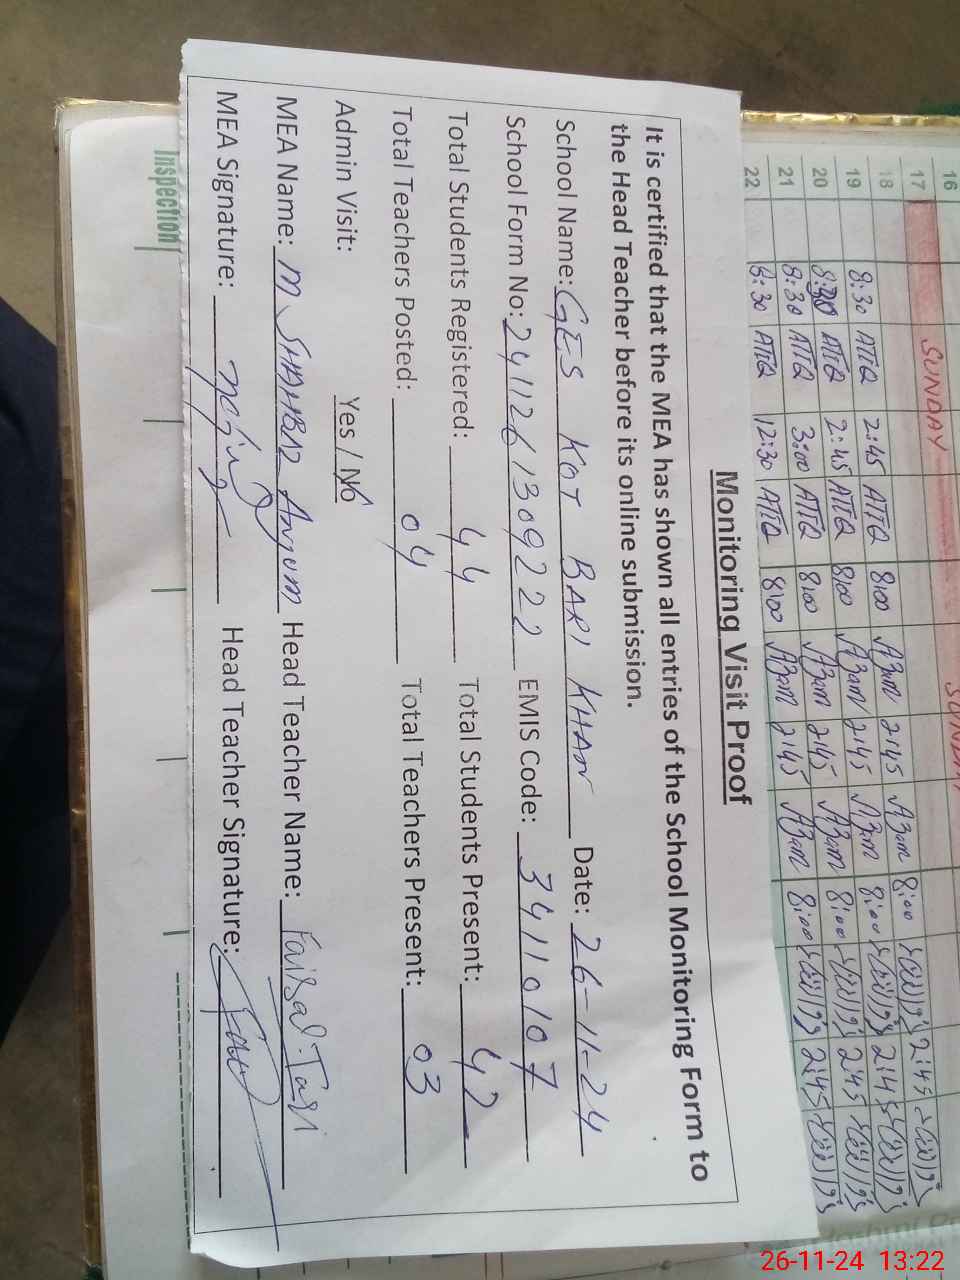 Monitoring Visit Proof
It is certified that the MEA has shown all entries of the School Monitoring Form to
the Head Teacher before its online submission.
School Name: GES KOT BARI KHAN Date: 26-11-24
School Form No: 241126130922 EMIS Code: 34110107
Total Students Registered: 44 Total Students Present: 42
Total Teachers Posted: 04 Total Teachers Present: 03
Admin Visit: Yes / No
MEA Name: M SHAHBAZ Anjum Head Teacher Name: Faisal
MEA Signature: Head Teacher Signature:
16
17 SUNDAY SUNDAY
18 8:30 ATTQ 2:45 ATTQ 8:00 Azam 2:45 Azam 8:00 2:45
19 ATTQ 2:45 ATTQ 8:00 Azam 2:45 Azam 8:00 2:45
20 8:30 ATTQ 3:00 ATTQ 8:00 Azam 2:45 Azam 8:00 2:45
21 8:30 ATTQ 12:30 ATTQ 8:00 Azam 2:45 Azam 8:00 2:45
22
Inspection
26-11-24 13:22